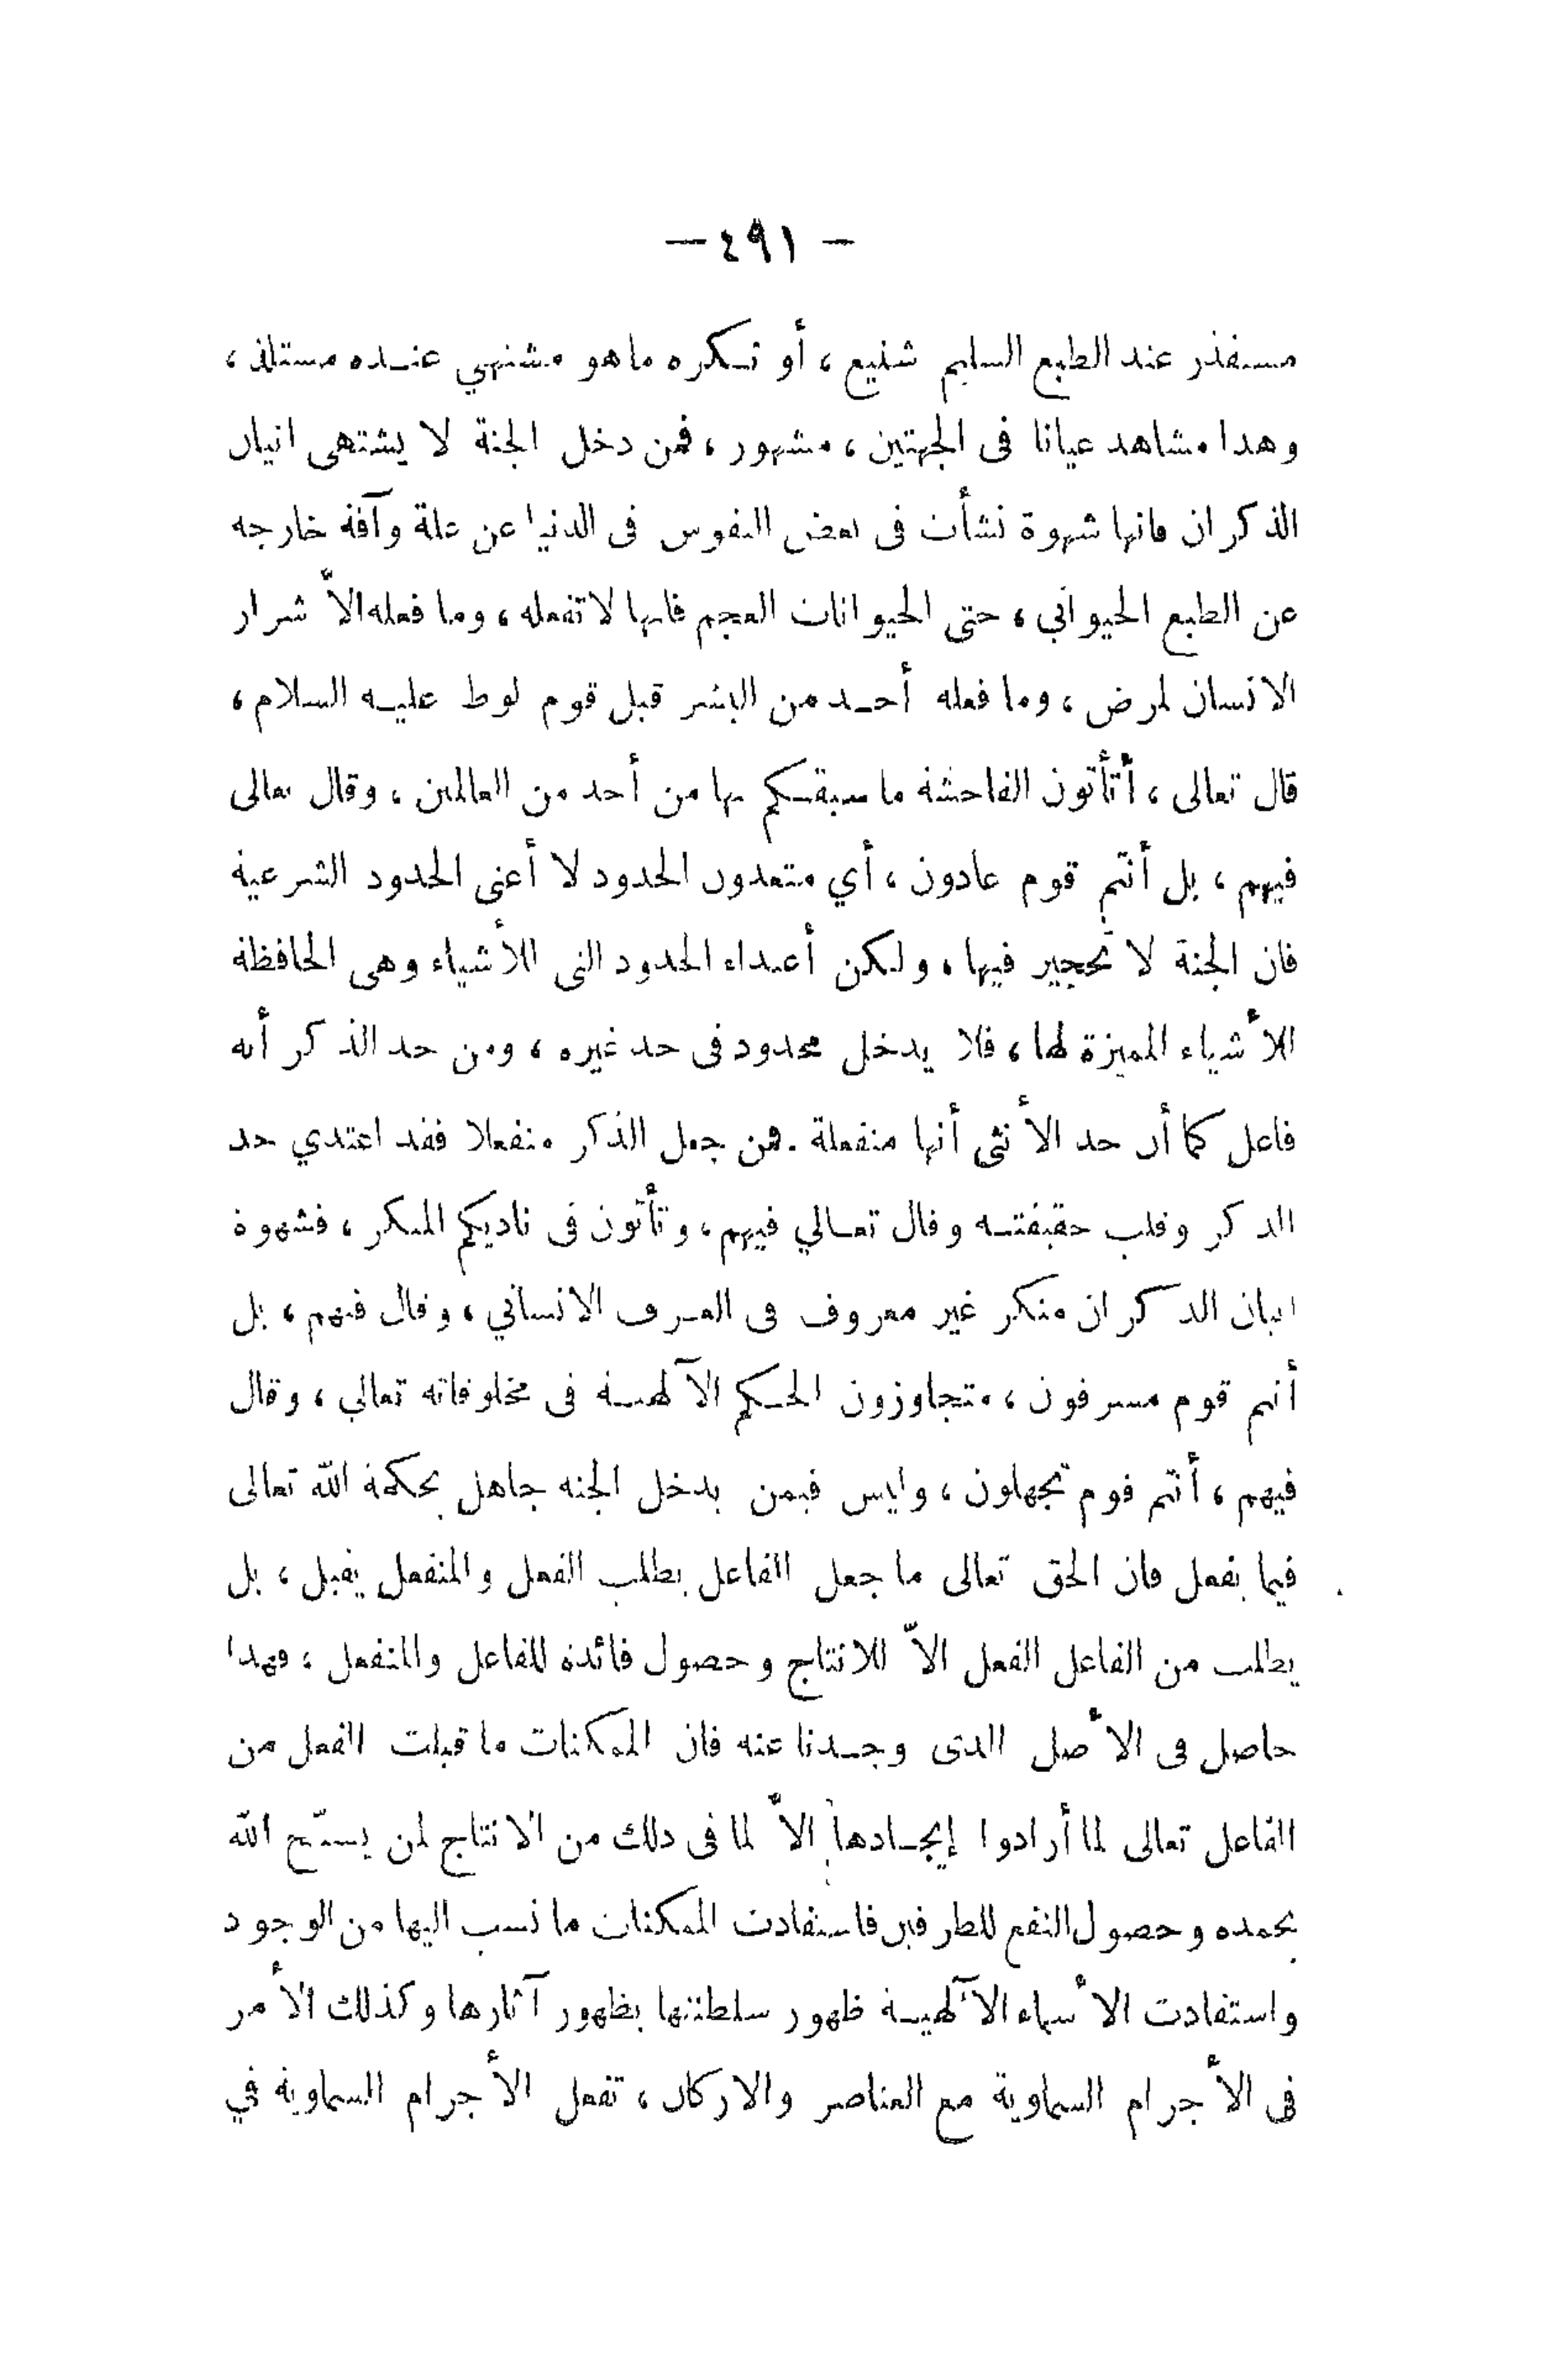 — ٤٩١ —
مستقذر عند الطبع السليم شنيع ، أو تكره ماهو مشتهي عنده مستلذ ،
وهذا مشاهد عيانا فى الجهتين ، مشهور ، فمن دخل الجنة لا يشتهى اتيان
الذكران فانها شهوة نشأت فى بعض النفوس فى الدنيا عن علة وآفة خارجه
عن الطبع الحيواني ، حتى الحيوانات العجم فانها لا تفعله ، وما فعله الاّ شرار
الانسان لمرض ، وما فعله أحد من البشر قبل قوم لوط عليه السلام ،
قال تعالى ، أتأتون الفاحشة ما سبقكم بها من أحد من العالمين ، وقال تعالى
فيهم ، بل أنتم قوم عادون ، أي متعدون الحدود لا أعنى الحدود الشرعية
فان الجنة لا تحجير فيها ، ولكن أعداء الحدود التى للأشياء وهى الحافظة
للأشياء المميزة لها ، فلا يدخل محدود فى حد غيره ، ومن حد الذكر أنه
فاعل كما أن حد الأنثى أنها منفعلة . فمن جعل الذكر منفعلا فقد اعتدي حد
الذكر وقلب حقيقته وقال تعالي فيهم ، وتأتون فى ناديكم المنكر ، فشهوة
اتيان الذكران منكر غير معروف فى العرف الانساني ، وقال فيهم ، بل
أنتم قوم مسرفون ، متجاوزون الحكم الآلهية فى مخلوقاته تعالي ، وقال
فيهم ، أنتم قوم تجهلون ، وليس فيمن يدخل الجنه جاهل بحكمة الله تعالى
فيما يفعل فان الحق تعالى ما جعل الفاعل يطلب الفعل والمنفعل يقبل ، بل
يطلب من الفاعل الفعل الاّ للانتاج وحصول فائدة للفاعل والمنفعل ، فهذا
حاصل فى الأصل الذى وجدنا عنه فان الممكنات ما قبلت الفعل من
الفاعل تعالى لما أرادوا إيجادها الاّ لما فى ذلك من الانتاج لمن يسبّح الله
بحمده وحصول النفع للطرفين فاستفادت الممكنات ما نسب اليها من الوجود
واستفادت الأسماء الآلهية ظهور سلطنتها بظهور آثارها وكذلك الأمر
فى الأجرام السماوية مع العناصر والاركان ، تفعل الأجرام السماوية في